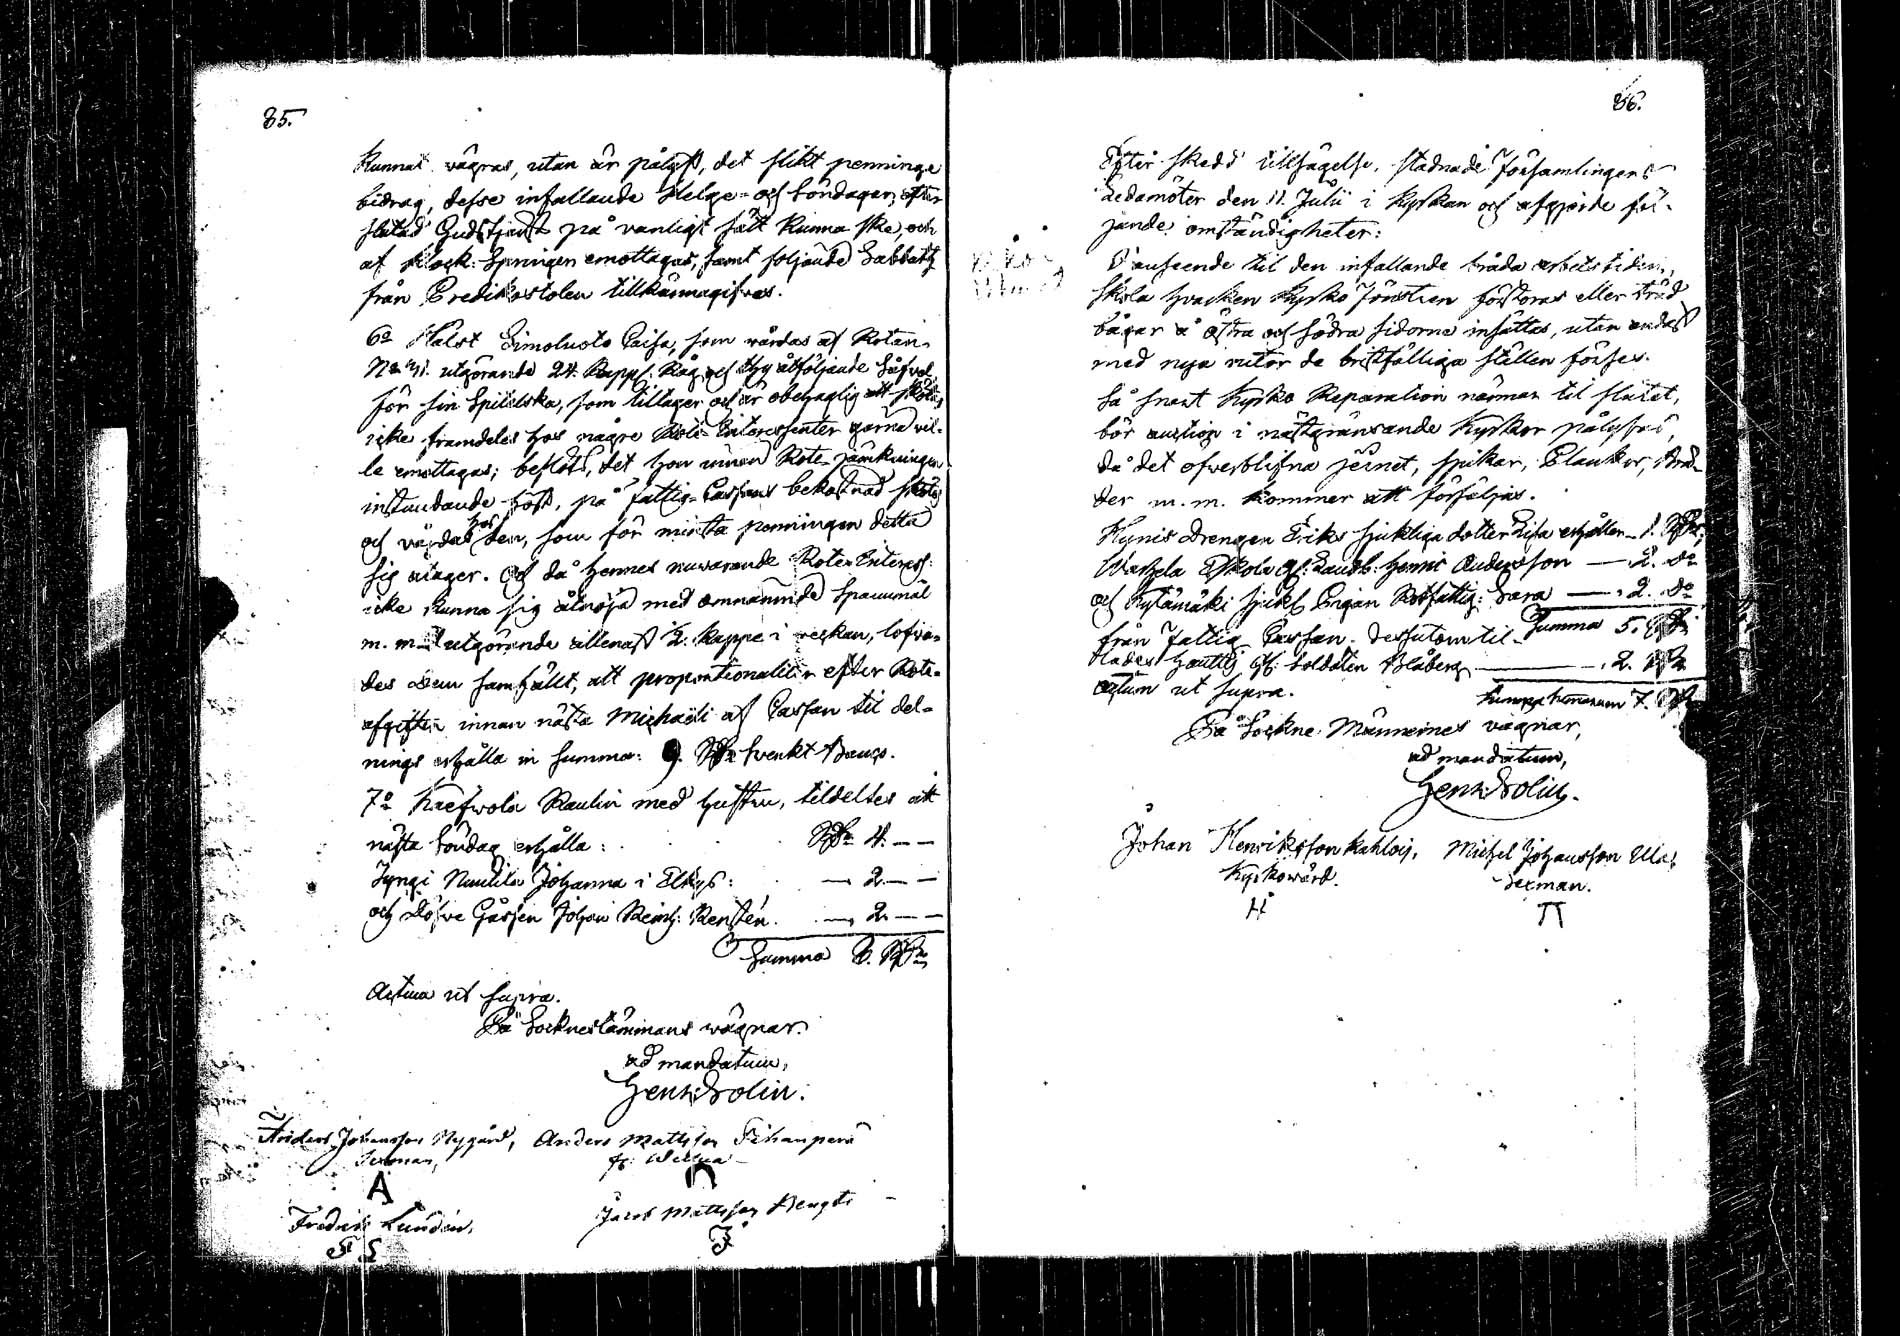 85.
kunnat vägras, utan är pålyst, det slikt penninge
bidrag, desse infallande Helge- och Söndagar, efter
slutad Gudstjenst på vanligt sätt kunna ske, och
af Klock: Spningen emottagas, samt följande Sabbath
från Predikostolen tillkännagifvas.
6o Halst Simoluoto Caisa, som vårdas af Rotan
No 41. utgörande 24. Kapp. Råg, och thy åtföljande Såfvel
för sin Spitelska, som tillager och är obehaglig att skötas
icke framdeles hos någre Rote-Interessenter gerna vil-
le emottagas; beslöts, det hon innan Rote-jämkningen
instundande höst, på Fattig-Cassans bekostnad skötes
och vårdas hos den, som för minsta penningen detta
sig åtager. Och då hennes nuvarande Rote-Interess:
icke kunna sig åtnöja med omnämnde Spannmål
m. m. utgörande allenast ½ kappe i veckan, lofva-
des dem samfällt, att proportionaliter efter Rote-
afgiften innan nästa Michaëli af Cassan til del-
nings erhålla in summa: 9. Rdr svenkt Banco.
7o Kaefwola Raulin med hustru, tildeltes att
nästa Söndag erhålla: Rdr 4. — —
Jyngi Nuutila Johanna i Elhys: — 2. — —
och döfve Gåssen Johan Reinh: Rensten. — 2. — —
Summa 8. Rdr
Actum ut supra.
På Socknestämmans wägnar.
ad mandatum,
Henr: Solin.
Anders Johansson Nygård, Anders Mattsson Tihanperä
Sexman,
A
Fredrik Lundén, Jacob Mattsson Bengts
F L
86.
Efter skedd tillsägelse, stadnade Församlingens
Ledamöter den 11. Julii i Kyrkan och afgjorde föl-
jande omständigheter:
I anseende til den infallande bråda arbetstiden,
skola hvarken Kyrko Fönstren förstoras eller träd
bågar å Östra och södra sidorna insättas, utan endast
med nya rutor de bristfälliga ställen förses.
Så snart Kyrko Reparation närmar til slutet,
bör auction i nästgränsande Kyrkor pålysas,
då det ofverblifna jernet, spikar, Plankor, Bräd-
der m. m. kommer att försäljas.
Hynis Drengen Eriks sjukliga dotter Lisa erhåller — 1. Rdr,
Warhela Eskola Henric Andersson — 2. do
och Kytämäki sjukl Pigan Rotfattig: Sara — 2. do
från Fattig Cassan. Dessutom til- Summa 5. Rdr
lades Soldaten Blåberg — 2. Rdr
actum ut supra. Summa summarum 7. Rdr
På Sockne-Männernes vägnar,
ad mandatum,
Henr: Solin.
Johan Henriksson Kahlois, Michel Johansson Ulas
Kyrkovärd. Sexman.
H